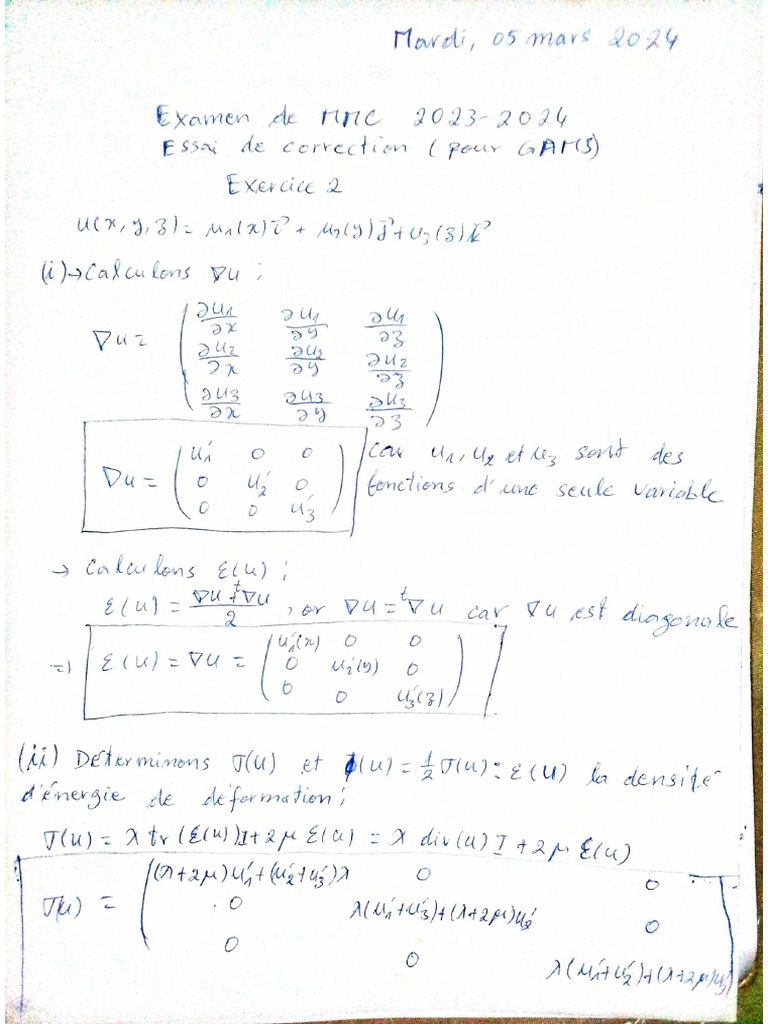 Mardi, 05 mars 2024
Examen de MMC 2023-2024
Essai de correction (pour GAMS)
Exercice 2
u(x, y, z) = u₁(x) i⃗ + u₂(y) j⃗ + u₃(z) k⃗
(i) → Calculons ∇u :
∇u = ( ∂u₁/∂x ∂u₁/∂y ∂u₁/∂z
∂u₂/∂x ∂u₂/∂y ∂u₂/∂z
∂u₃/∂x ∂u₃/∂y ∂u₃/∂z )
∇u = ( u₁' 0 0 car u₁, u₂ et u₃ sont des
0 u₂' 0 fonctions d'une seule variable
0 0 u₃' )
→ Calculons ε(u) :
ε(u) = (∇u + ᵗ∇u)/2 , or ∇u = ᵗ∇u car ∇u est diagonale
=) ε(u) = ∇u = ( u₁'(x) 0 0
0 u₂'(y) 0
0 0 u₃'(z) )
(ii) Déterminons σ(u) et ϕ(u) = ½ σ(u) : ε(u) la densité
d'énergie de déformation ;
σ(u) = λ tr(ε(u)) I + 2μ ε(u) = λ div(u) I + 2μ ε(u)
σ(u) = ( (λ+2μ)u₁' + (u₂'+u₃')λ 0 0
0 λ(u₁'+u₃') + (λ+2μ)u₂' 0
0 0 λ(u₁'+u₂') + (λ+2μ)u₃'